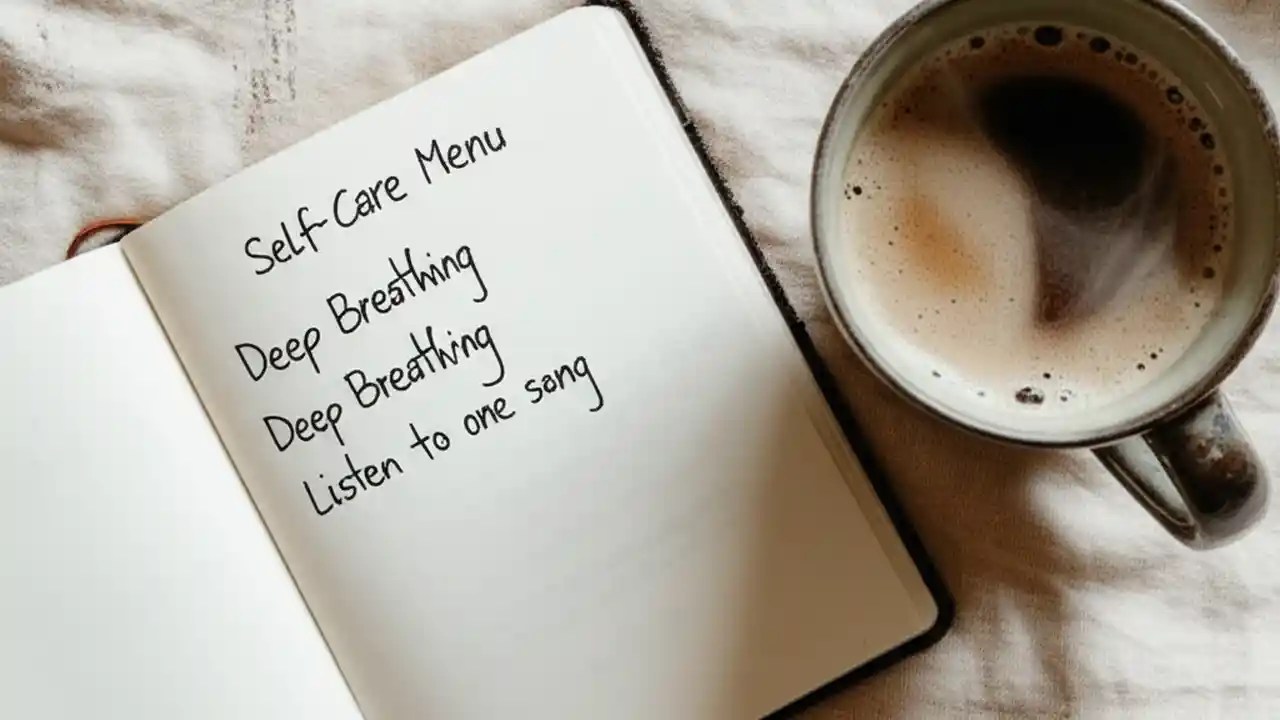 Self-Care Menu
Deep Breathing
Deep Breathing
Listen to one song